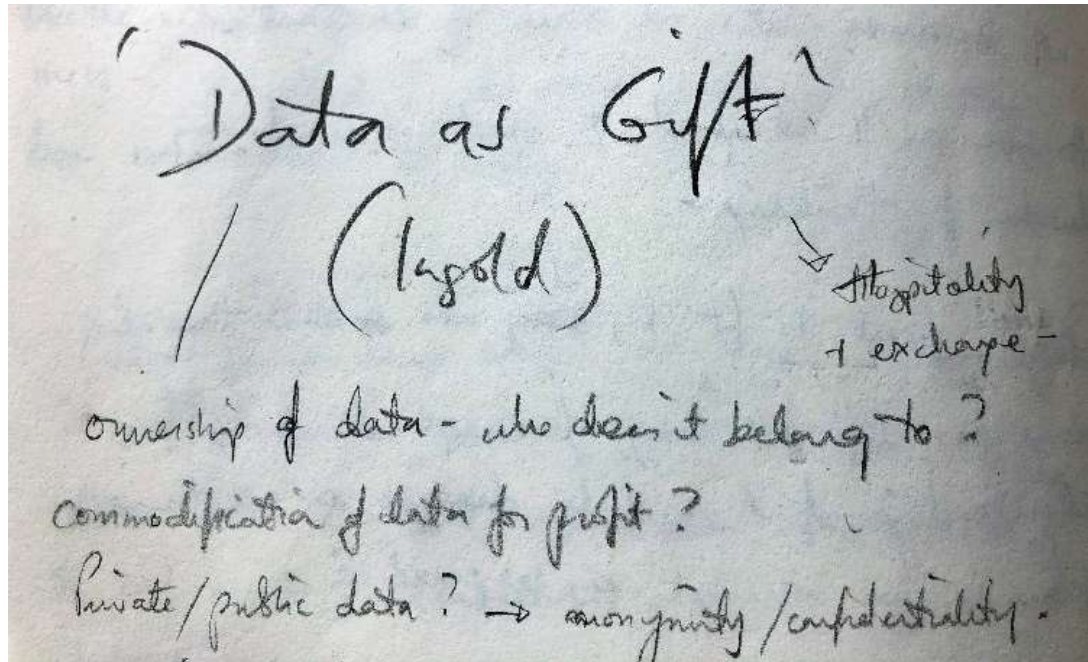 'Data as Gift'
(Ingold)
→ Hospitality
+ exchange -
ownership of data - who does it belong to?
commodification of data for profit?
Private/public data? → anonymity/confidentiality.